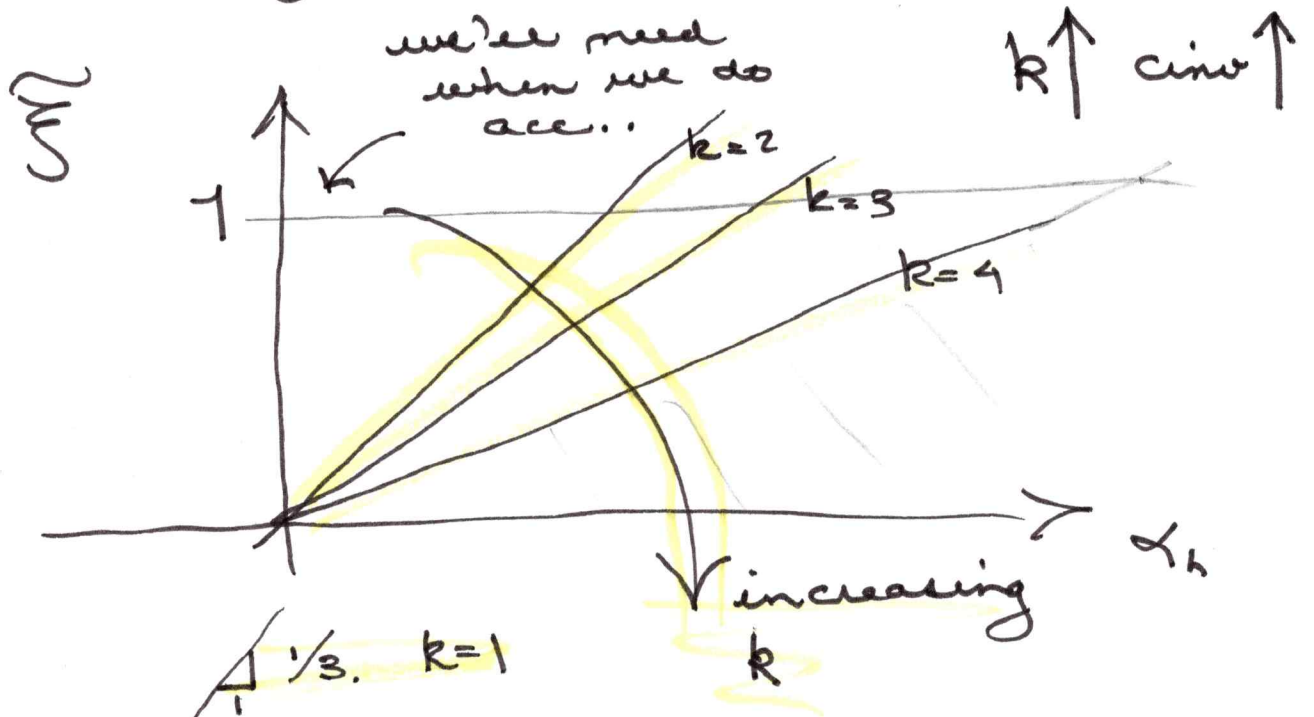 we'll need
when we do
acc..
k↑ cinv↑
ξ̃
1
k=2
k=3
k=4
αh
increasing
k
1/3. k=1
1